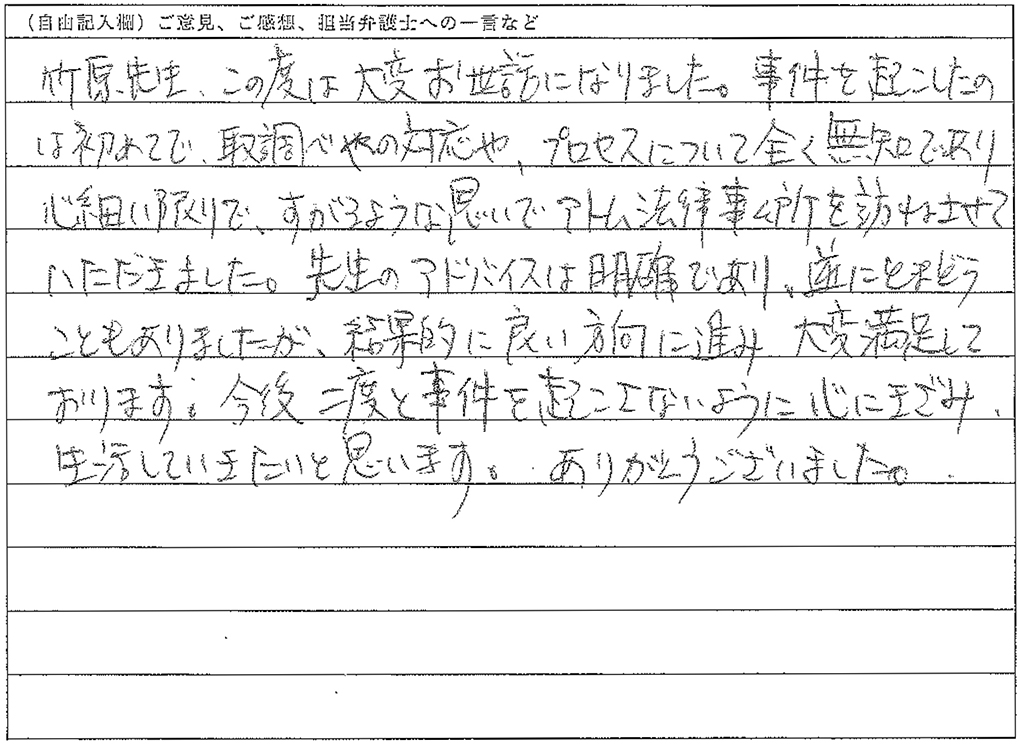 （自由記入欄）ご意見、ご感想、担当弁護士への一言など
竹原先生、この度は大変お世話になりました。事件を起こしたの
は初めてで、取調べやの対応や、プロセスについて全く無知であり
心細い限りで、すがるような思いでアトム法律事ム所を訪ねさせて
いただきました。先生のアドバイスは明確であり、逆にとまどう
こともありましたが、結果的に良い方向に進み 大変満足して
おります。今後 二度と事件を起こさないように心にきざみ、
生活していきたいと思います。ありがとうございました。